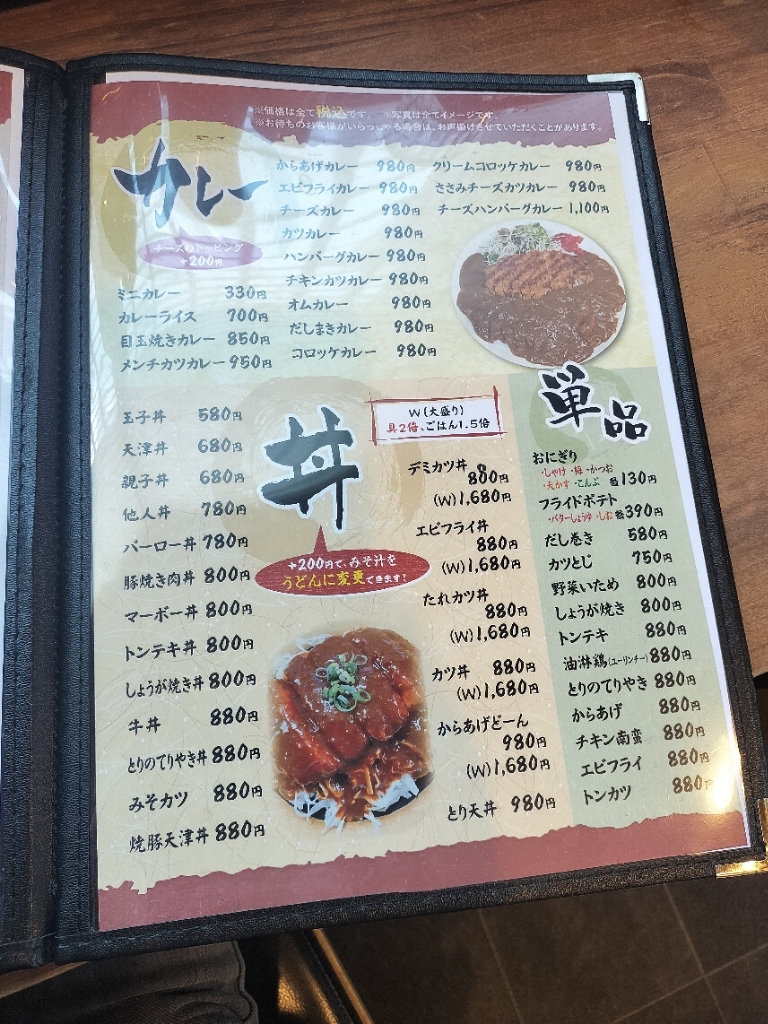 ※価格は全て税込です。 ※写真は全てイメージです。
※お待ちのお客様がいらっしゃる場合は、お声掛けさせていただくことがあります。
カレー
チーズのトッピング
+200円
ミニカレー 330円
カレーライス 700円
目玉焼きカレー 850円
メンチカツカレー 950円
からあげカレー 980円
エビフライカレー 980円
チーズカレー 980円
カツカレー 980円
ハンバーグカレー 980円
チキンカツカレー 980円
オムカレー 980円
だしまきカレー 980円
コロッケカレー 980円
クリームコロッケカレー 980円
ささみチーズカツカレー 980円
チーズハンバーグカレー 1,100円
丼
W(大盛り)
具2倍、ごはん1.5倍
+200円で、みそ汁を
うどんに変更できます!
玉子丼 580円
天津丼 680円
親子丼 680円
他人丼 780円
バーロー丼 780円
豚焼き肉丼 800円
マーボー丼 800円
トンテキ丼 800円
しょうが焼き丼 800円
牛丼 880円
とりのてりやき丼 880円
みそカツ 880円
焼豚天津丼 880円
デミカツ丼
880円
(W)1,680円
エビフライ丼
880円
(W)1,680円
たれカツ丼
880円
(W)1,680円
カツ丼 880円
(W)1,680円
からあげどーん
980円
(W)1,680円
とり天丼 980円
単品
おにぎり
・しゃけ・梅・かつお
・天かす・こんぶ 各130円
フライドポテト
・バターしょうゆ・しお 各390円
だし巻き 580円
カツとじ 750円
野菜いため 800円
しょうが焼き 800円
トンテキ 880円
油淋鶏(ユーリンチー) 880円
とりのてりやき 880円
からあげ 880円
チキン南蛮 880円
エビフライ 880円
トンカツ 880円